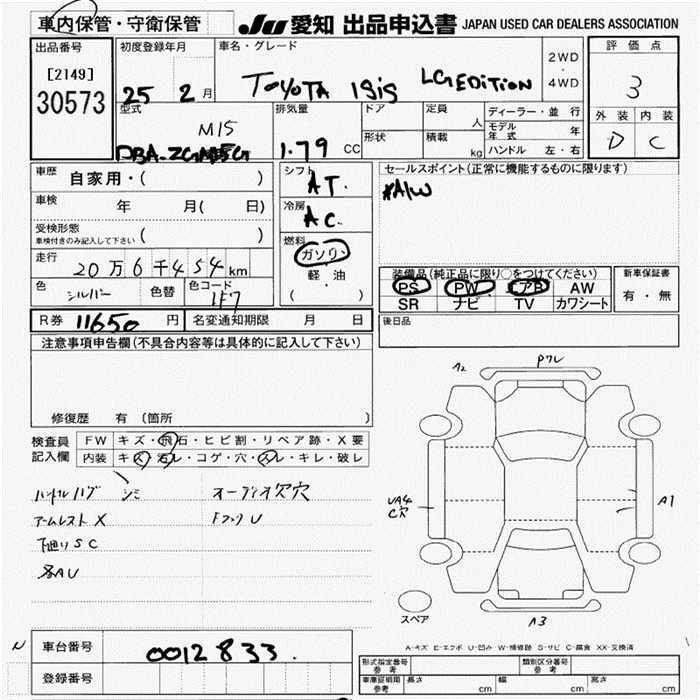 車内保管・守衛保管
JU 愛知 出品申込書 JAPAN USED CAR DEALERS ASSOCIATION
出品番号
[2149]
30573
初度登録年月
25 2 月
車名・グレード
TOYOTA ISIS LG EDITION
2WD
・
4WD
評価点
3
外装 内装
D C
型式
M15
DBA-ZGM15G
排気量
1.79 CC
ドア
形状
定員 人
積載 kg
ディーラー・並行
モデル年式 年
ハンドル 左・右
車歴 自家用・( )
車検 年 月( 日)
受検形態
車検付きのみ記入して下さい ( )
走行 20万6千454km
色 シルバー 色替 色コード 1F7
シフト AT.
冷房 AC.
燃料
ガソリン
・
軽油
( )
セールスポイント(正常に機能するものに限ります)
#A/W
装備品(純正品に限り○をつけてください)
PS PW エアB AW
SR ナビ TV カワシート
新車保証書
有・無
R券 11650 円 名変通知期限 月 日
後日品
注意事項申告欄(不具合内容等は具体的に記入して下さい)
修復歴 有(箇所 )
検査員記入欄
FW キズ・飛石・ヒビ割・リペア跡・X要
内装 キズ・汚レ・コゲ・穴・スレ・キレ・破レ
ハンドルハゲ シミ オーディオ欠穴
アームレスト X
下廻りSC
各AU
P7レ
UA4
C穴
A1
A3
スペア
A-キズ E-エクボ U-凹み W-補修跡 S-サビ C-腐食 XX-交換済
N
車台番号 0012833.
登録番号
形式指定番号 参考
類別区分番号 参考
車庫証明用 参考 長さ cm 幅 cm 高さ cm